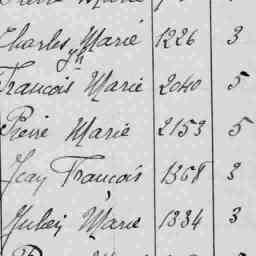 Charles Marie 1226 3
François Marie 2040 5
Pierre Marie 2153 5
Jean François 1368 3
Julien Marie 1334 3